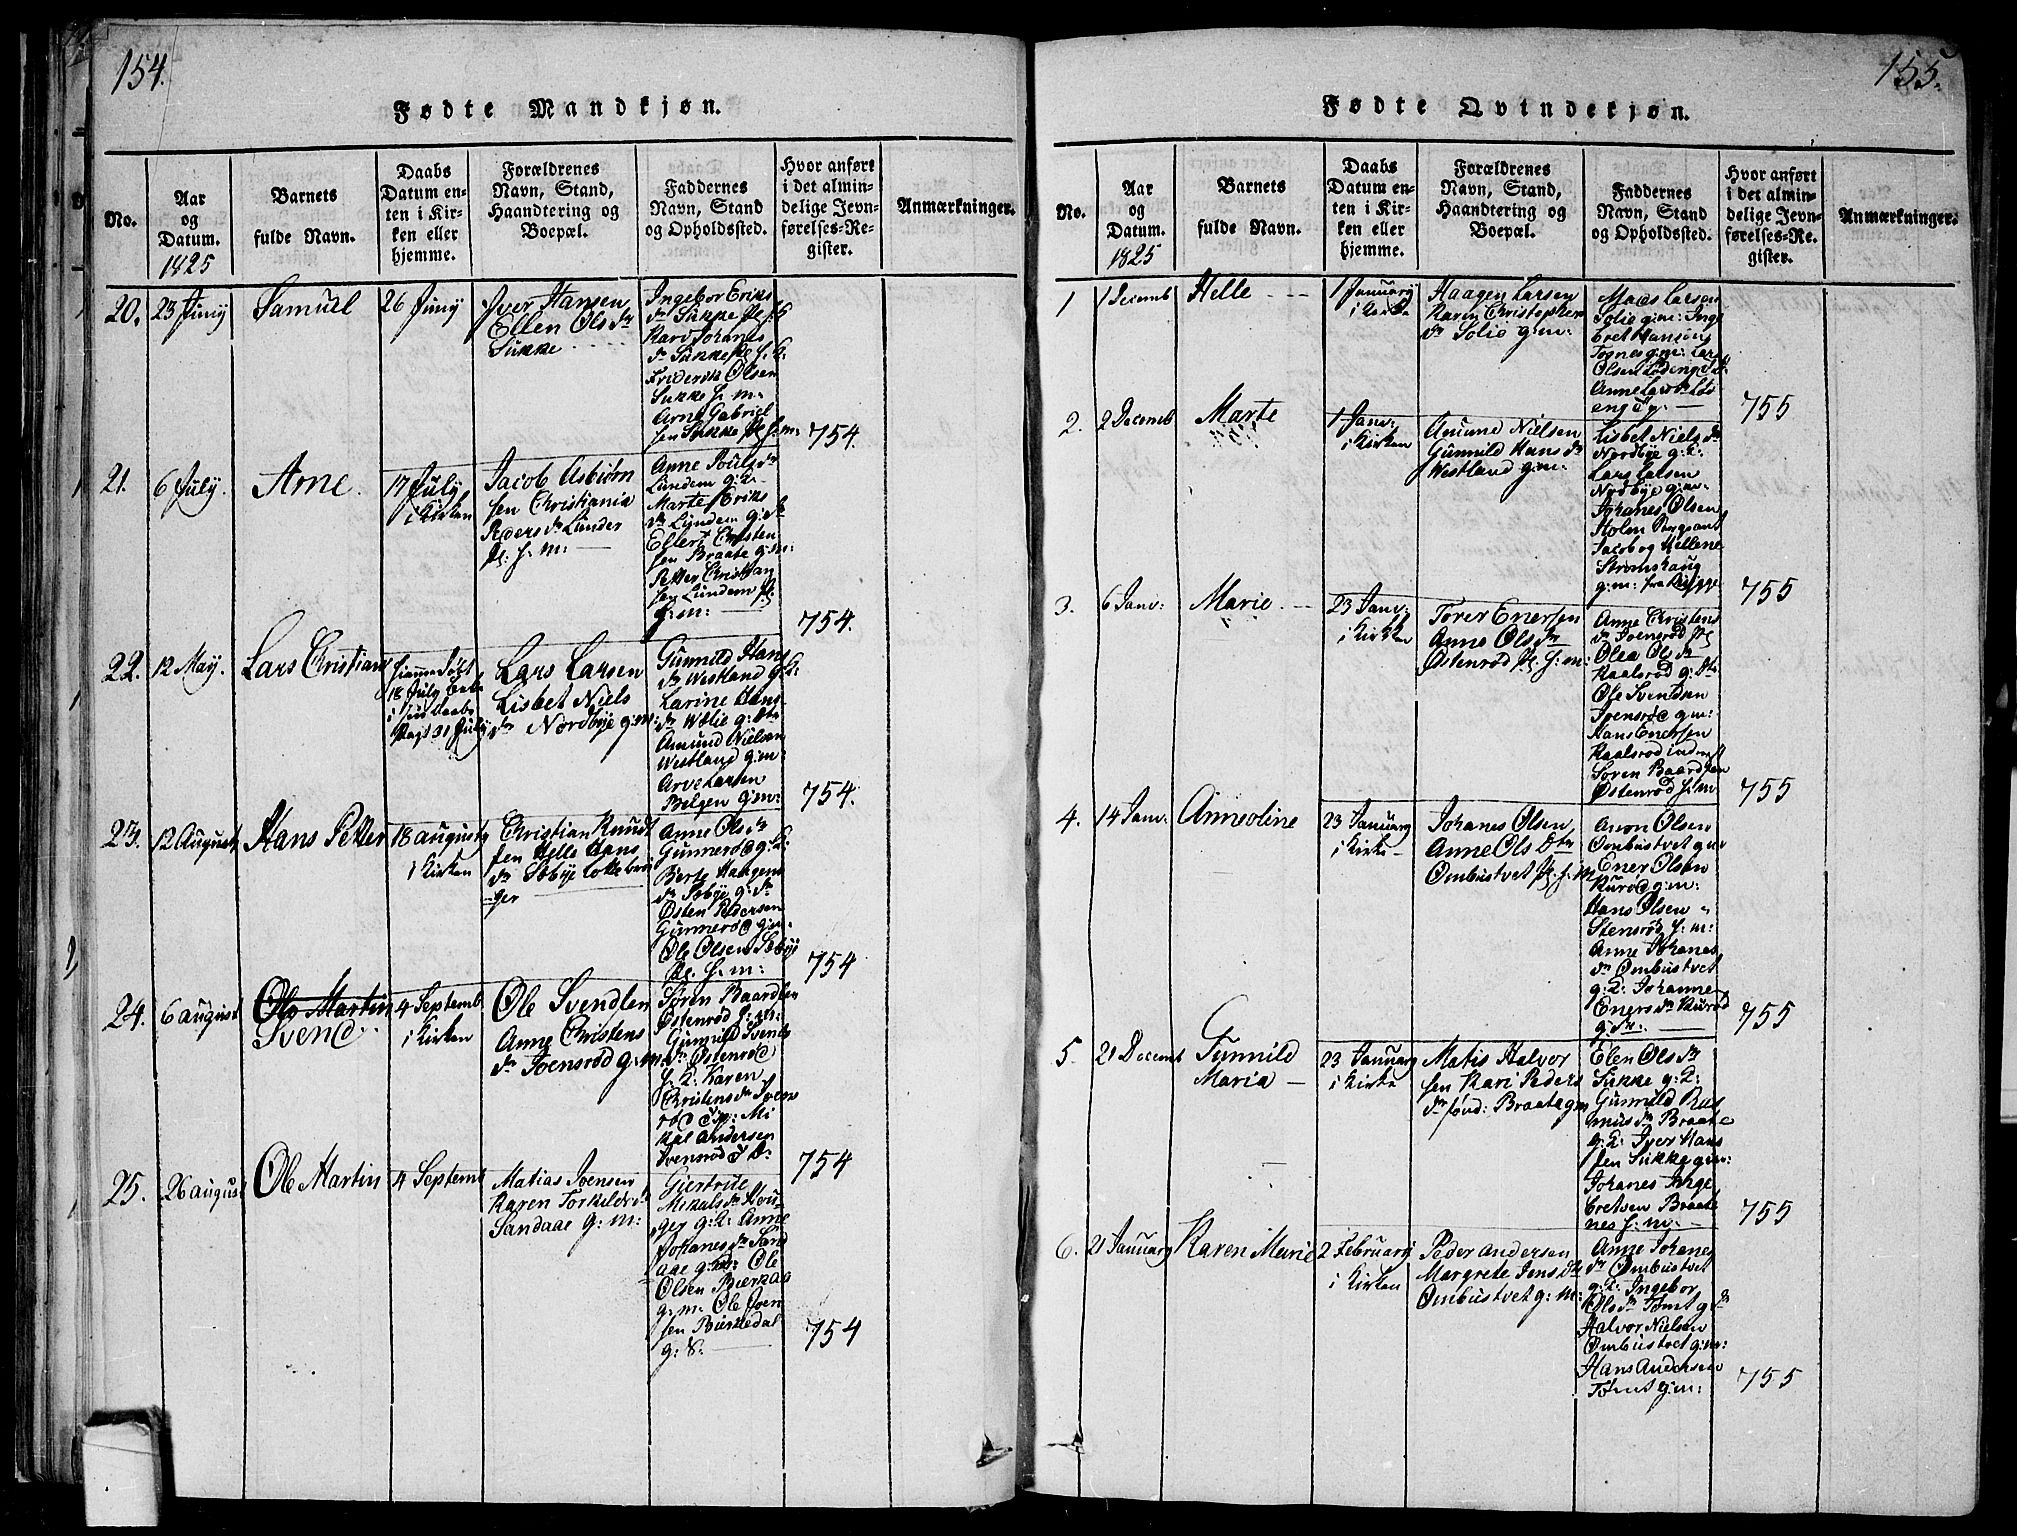 154.
Fødte Mandkjøn.
No.
Aar
og
Datum.
1825
Barnets
fulde Navn.
Daabs
Datum en-
ten i Kir-
ken eller
hjemme.
Forældrenes
Navn, Stand,
Haandtering og
Boepæl.
Faddernes
Navn, Stand
og Opholdssted.
Hvor anført
i det almin-
delige Jevn-
førelses-Re-
gister.
Anmærkninger.
20.
23 Juny
Samuel
26 Juny
Iver Hansen
Ellen Ols dr
Sukke
Ingebor Eriks
dr Sukke
Kari Johanes
dr Sukke
Friderik Olsen
Sukke f. m:
Arne Gabriel
sen Sukke pl. f: m:
754.
21.
6 July.
Arne.
17 July
i Kirken
Jacob Asbiørn
sen Christiania
Peders dr Lunder
pl: f: m:
Anne Pouls dr
Lundem g: K
Marte Eriks
dr Lundem g:
Ellert Christen
sen Braate g: m:
Petter Christian
sen Lundem pl:
f: m:
754.
22.
12 May.
Lars Christian
hiemmedøbt
18 July
31 July
Lars Larsen
Lisbet Niels
dr Nordbye g: m:
Gunnild Hans
dr Westland g: K:
Larine Hans
dr g: Dtr
Amund Nielsen
Westland g: m:
Arve Larsen
Belgen g: m:
754.
23.
12 August
Hans Petter
18 augusty
i Kirken
Christian Knudt
sen Helle Hans
dr Sobye
ger
Anne Ols dr
Gunnerød g: K:
Berte Haagens
dr Sobye g: dr
Østen Pedersen
Gunnerød g: m:
Ole Olsen Sobye
pl. f: m:
754
24.
6 august
Ole Martin
Svend
4 Septemb
i Kirken
Ole Svendsen
Anne Christens
dr Joensrød g: m
Søren Baardsen
Østenrød f: m:
Gunnild Svends
dr Østenrød
f. K: Karen
Christens dr Joens
rød
Mi
kal Andersen
Joensrød
754
25.
26 august
Ole Martin
4 Septemb
Matias Joensen
Karen Torkilds dr
Sandaae g: m:
Giertrue
Mikals dr Hou
gen g: K: Anne
Johanes dr Sand
aae g: Ole
Olsen
g: m: Ole Joen
sen Birkedal
g: S:
754
155.
Fødte Qvindekjøn.
No.
Aar
og
Datum.
1825
Barnets
fulde Navn.
Daabs
Datum en-
ten i Kir-
ken eller
hjemme.
Forældrenes
Navn, Stand,
Haandtering og
Boepæl.
Faddernes
Navn, Stand
og Opholdssted.
Hvor anført
i det almin-
delige Jevn-
førelses-Re-
gister.
Anmærkninger.
1
1 Decemb
Helle
1 January
i Kirke
Haagen Larsen
Karen Christophers
dr Solie g: m:
Mads Larsen
Solie g: m: Inge
bret Hansen
Tosnes g: m: Lars
Olsen
Anne Lars dr
eng
755
2.
2 Decemb
Marte
1 Janv:
i Kirken
Amund Nielsen
Gunnild Hans dr
Westland g: m:
Lisbet Niels dr
Nordbye g: K:
Lars Larsen
Nordbye g: m:
Johanes Olsen
Holen
Jacob og Hellene
Strømshaug
g: m: fra Rygge
755
3.
6 Janv:
Marie.
23 Janv:
i Kirken
Torer Enersen
Anne Ols dr
Østenrød pl. f: m:
Anne Christens
dr Joensrød pl
Olea Ols dr
Kaalsrød g: Dtr
Ole Svendsen
Joensrød g: m:
Hans Enersen
Kaalsrød
Søren Baardsen
Østenrød f: m
755
4.
14 Janv:
Anneoline
23 January
i Kirke
Johanes Olsen
Anne Ols Dtr
Ombustvet pl. f: m
Aron Olsen
Ombustvet g: m
Ener Olsen
Kurød g: m:
Hans Olsen
Stensrød f: m:
Anne Johanes
dr Ombustvet
g: K: Johanne
Eners dr Kurød
g: dr:
755
5.
21 Decemb
Gunnild
Maria
23 January
i Kirke
Matis Halvor
sen Kari Peders
dr Braata g: m
Elen Ols dr
Sukke g: K:
Gunnild Ras
mus dr Braate
g: K: Iver Hans
sen Sukke g: m:
Johanes Inge
bretsen Braate
nes f: m:
755
6.
21 January
Karen Marie
2 February
i Kirken
Peder Andersen
Margrete Jens dtr
Ombustvet g: m:
Anne Johanes
dr Ombustvet
g: K: Ingebor
Ols dr Tomt g: dr
Halvor Nielsen
Ombustvet g: m:
Hans Andersen
Tomt g: m:
755